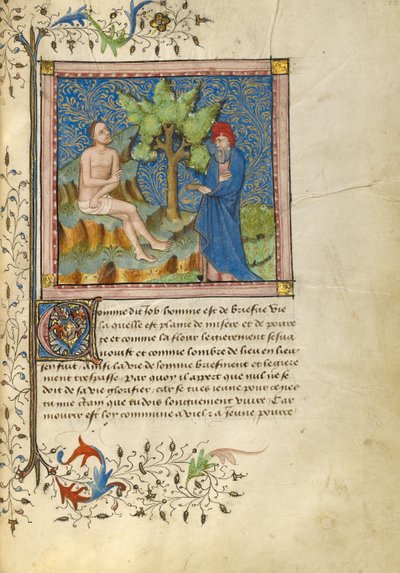 Comme dit Job homme est de briefue vie
la quelle est plaine de misere et de pource
te et comme la flour legierement sesua
nouist et comme lombre de lieu en lieu
sen fuit ainsi la vie de lomme briefment et legiere
ment trespasse Par quoy il appert que nul ne se
doit de sa vie glorifier car se tu es ieune pour ce nes
tu mie certain que tu dois longuement viure Car
mourir est loy commune a vielz a ieune poure